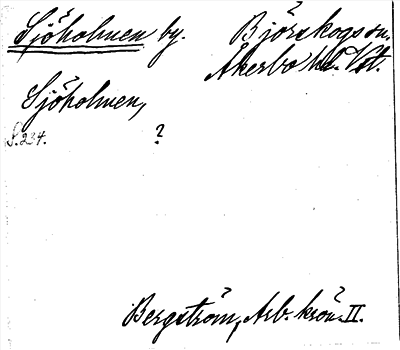 Sjöholmen by. Björskogs sn.
Åkerbo hd. Vstl.
Sjöholmen,
S. 234. ?
Bergström, Arb. krön. II.